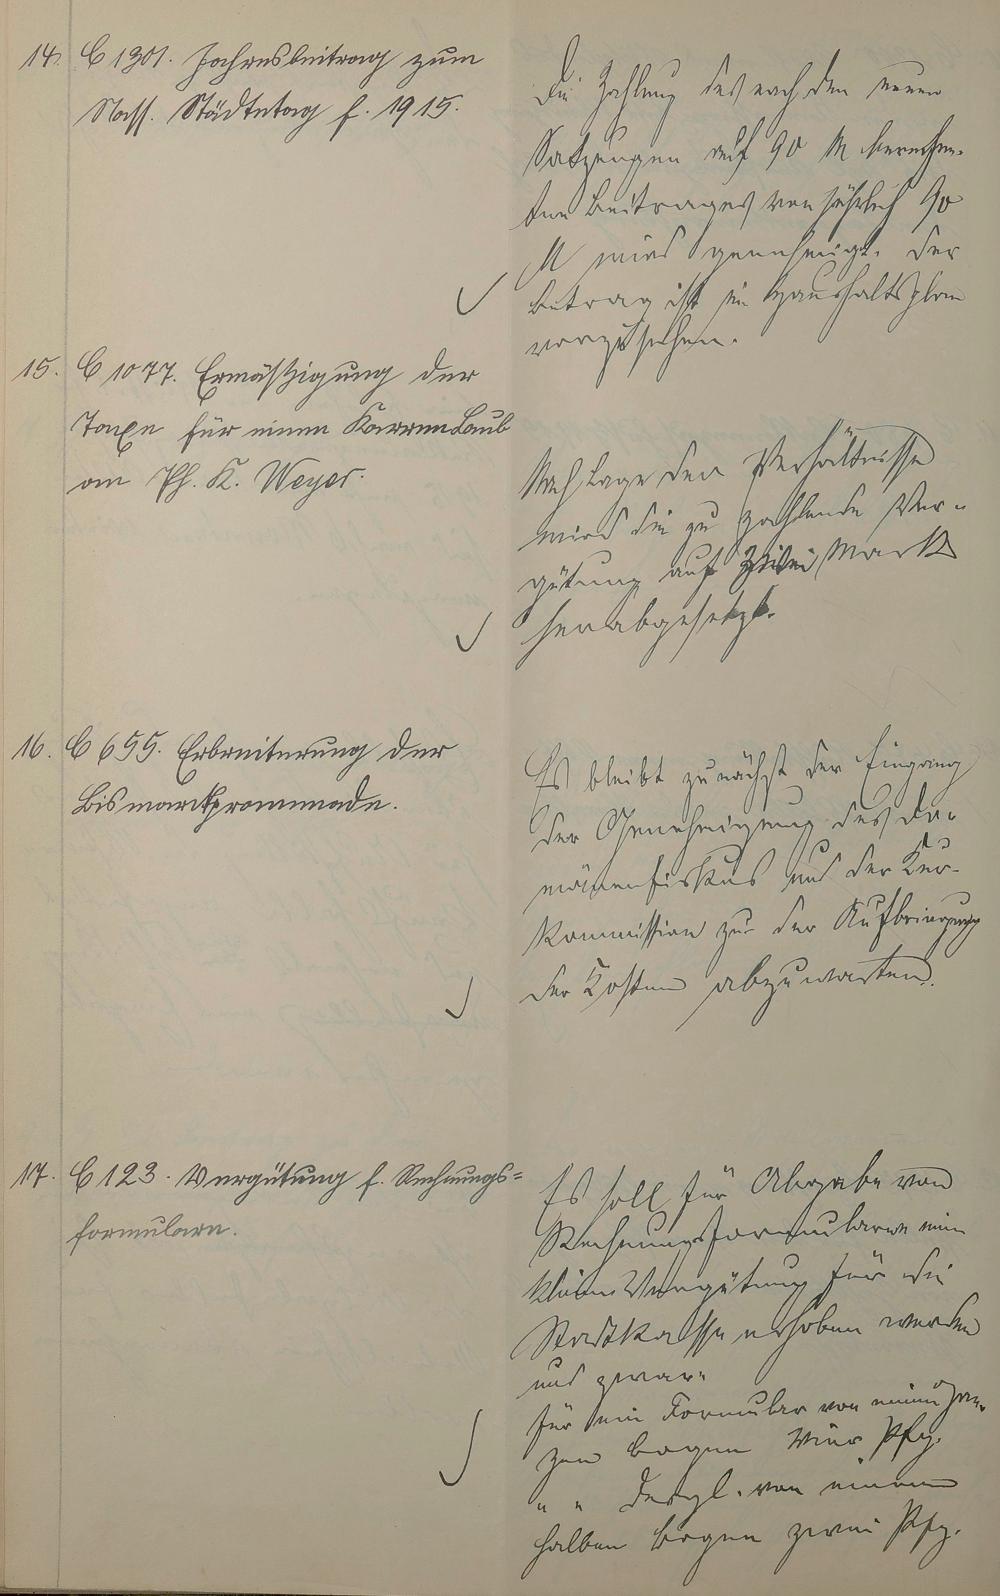 14. C 1301. Jahresbeitrag zum
Nass. Städtetag f. 1915.
Die Zahlung des nach den neuen
Satzungen auf 90 M berechne-
ten Beitrages von jährlich 90
M wird genehmigt. Der
Betrag ist im Haushaltsplan
vorzusehen.
15. C 1077. Ermäßigung der
Taxe für einen Karren Laub
an Ph. K. Weyer.
Nach Lage der Verhältnisse
wird die zu zahlende Ver-
gütung auf zwei Mark
herabgesetzt.
16. C 655. Erbreiterung der
Bismarckpromenade.
Es bleibt zunächst der Eingang
der Genehmigung des Do-
mänenfiskus und der Kur-
kommission zu der Aufbringung
der Kosten abzuwarten.
17. C 123. Vergütung f. Rechnungs=
formulare.
Es soll für Abgabe von
Rechnungsformularen eine
kleine Vergütung für die
Stadtkasse erhoben werden
und zwar:
für ein Formular von einem gan-
zen Bogen vier Pfg.
" " desgl. von einem
halben Bogen zwei Pfg.